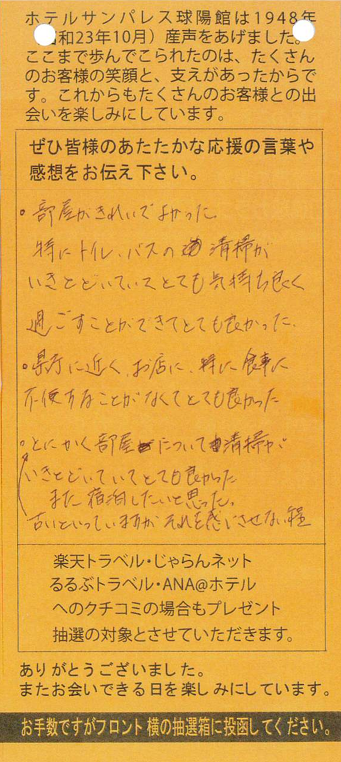 ホテルサンパレス球陽館は1948年
(昭和23年10月)産声をあげました。
ここまで歩んでこられたのは、たくさん
のお客様の笑顔と、支えがあったからで
す。これからもたくさんのお客様との出
会いを楽しみにしています。
ぜひ皆様のあたたかな応援の言葉や
感想をお伝え下さい。
・部屋がきれいでよかった
特にトイレ、バスの清掃が
いきとどいていてとても気持ち良く
過ごすことができてとても良かった、
・県庁に近く、お店に、特に食事に
不便することがなくてとても良かった
・とにかく部屋について清掃が
いきとどいていてとても良かった
また宿泊したいと思った。
古いといっていますがそれを感じさせない程
楽天トラベル・じゃらんネット
るるぶトラベル・ANA@ホテル
へのクチコミの場合もプレゼント
抽選の対象とさせていただきます。
ありがとうございました。
またお会いできる日を楽しみにしています。
お手数ですがフロント横の抽選箱に投函してください。